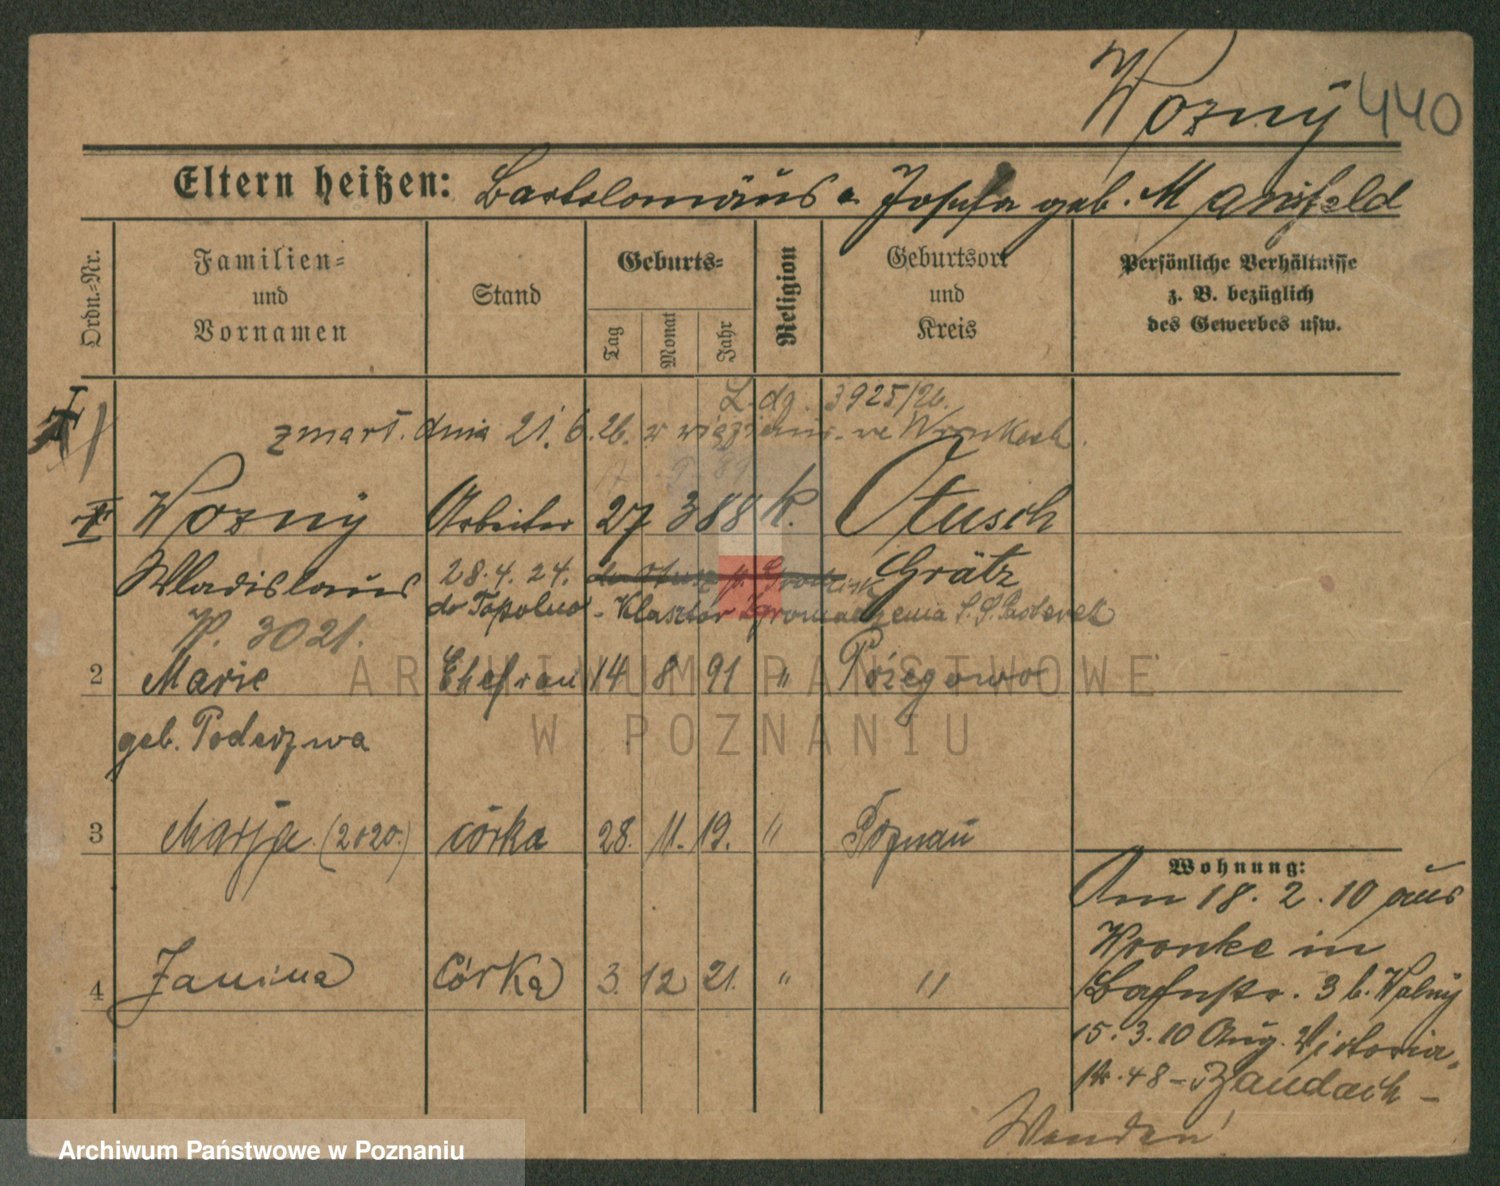 Wozny 440
Eltern heißen: Bartolomäus u. Josefa geb. Mansfeld
Ordn.-Nr.
Familien-
und
Vornamen
Stand
Geburts-
Tag
Monat
Jahr
Religion
Geburtsort
und
Kreis
Persönliche Verhältnisse
z. B. bezüglich
des Gewerbes usw.
L. dz. 3925/26.
zmarł. dnia 21.6.26. w więzieniu we Wronkach.
I Wozny Arbeiter 27 3 88 K. Otusch
Wladislaus 28.4.24. Grätz
do Topolno - Klasztor Zgromadzenia
3021.
2 Marie Ehefrau 14 8 91 "
geb. Poderzwa
3 Marja (2020.) córka 28. 11. 19. " Poznań
4 Janina córka 3. 12 21. " "
Wohnung:
Am 18.2.10 aus
Wronke in
Bahnstr. 3 b. Wolny
15.3.10 Aug. Victoria-
str. 48 -
Wenden!
ARCHIWUM PAŃSTWOWE
W POZNANIU
Archiwum Państwowe w Poznaniu